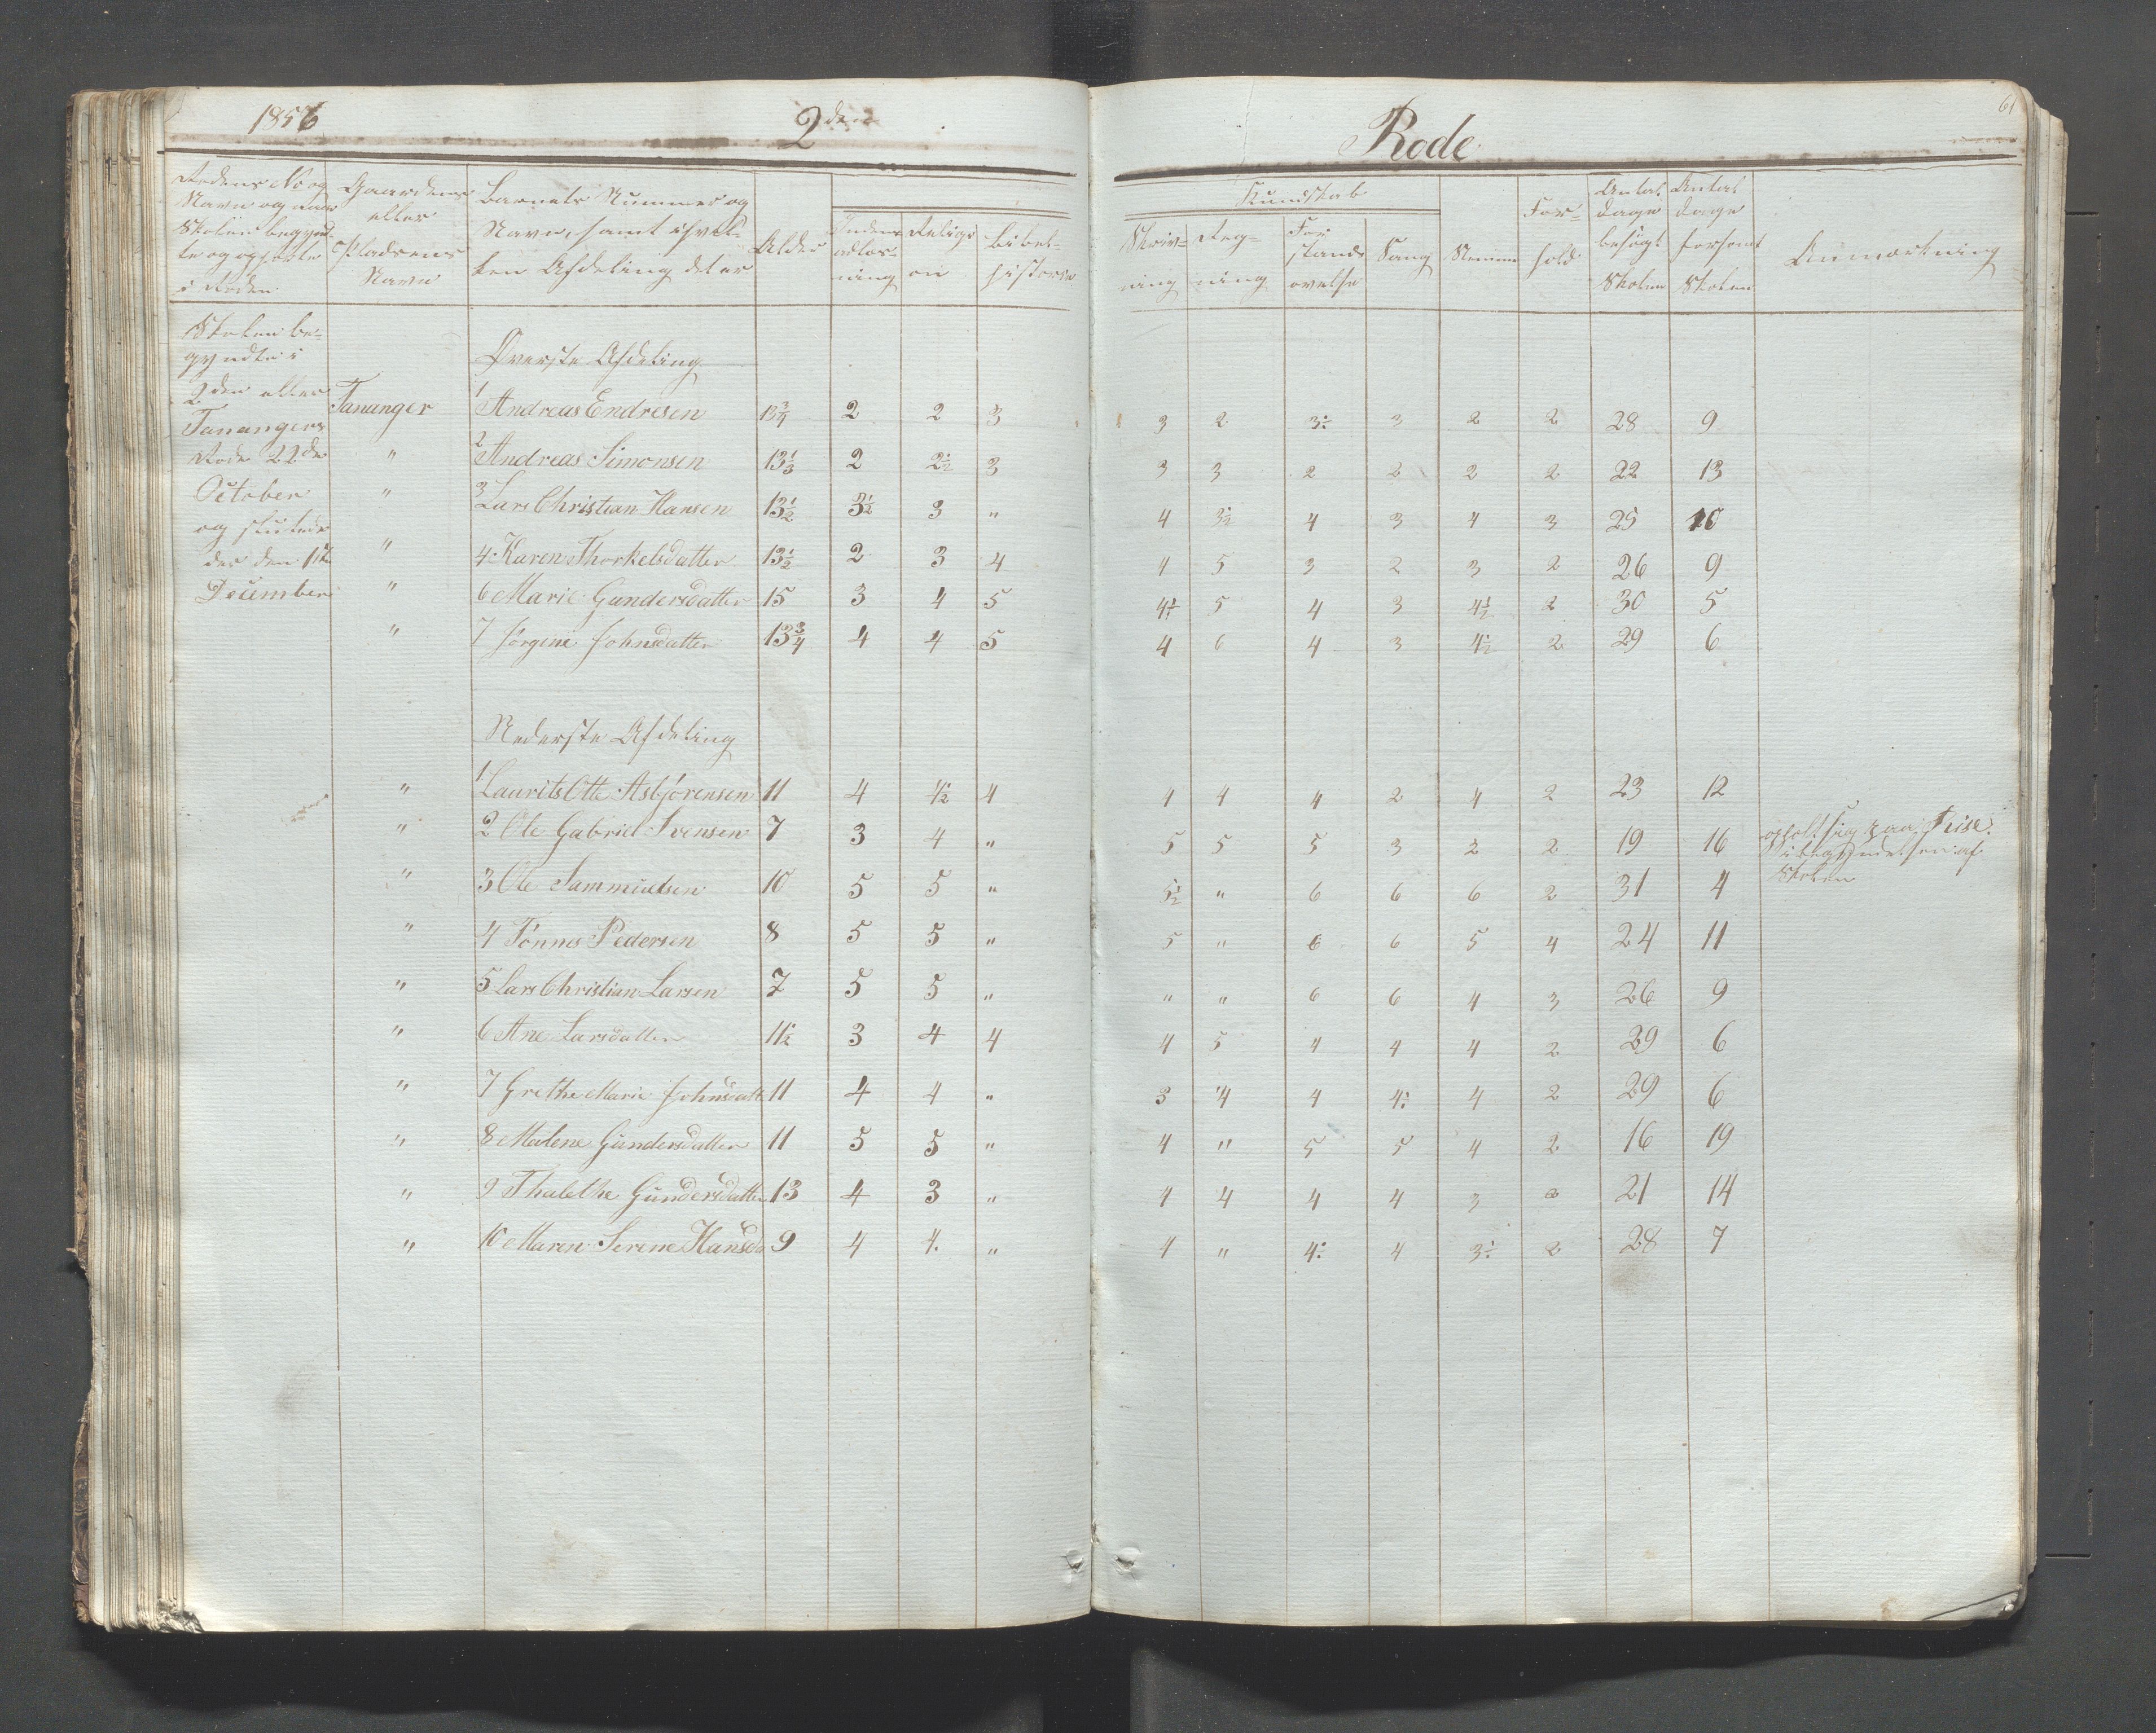 1856 2den Rode. 61
Rodens No og
Navn og naar
Skolen begynd-
te og ophørte
i Roden
Gaardens
eller
Pladsens
Navn
Barnets Nummer og
Navn, samt i hvil-
ken Afdeling det er
Alder
Inden-
adlæs-
ning
Religi-
on
Bibel-
historie
Kundskab
Skriv-
ning
Reg-
ning
For-
stands
øvelse
Sang
Nemme
For-
hold
Antal
Dage
besøgt
Skolen
Antal
Dage
forsømt
Skolen
Anmærkning
Skolen be-
gyndte i
2den eller
Tanangers
Rode 22de
October
og sluttede
der den 1ste
December
Øverste Afdeling
Tananger 1 Andreas Endresen 13¾ 2 2 3 3 2 3½ 3 2 2 28 9
" 2 Andreas Simonsen 13⅓ 2 2½ 3 3 3 2 2 2 2 22 13
" 3 Lars Christian Hansen 13½ 3½ 3 " 4 3½ 4 3 4 3 25 10
" 4 Karen Thorkelsdatter 13½ 2 3 4 4 5 3 2 3 2 26 9
" 6 Marie Gundersdatter 15 3 4 5 4½ 5 4 3 4½ 2 30 5
" 7 Jørgine Johnsdatter 13¾ 4 4 5 4 6 4 3 4½ 2 29 6
Nederste Afdeling
" 1 Laurits Otto Asbjörensen 11 4 4½ 4 4 4 4 2 4 2 23 12
" 2 Ole Gabriel Svensen 7 3 4 " 5 5 5 3 2 2 19 16 opholt sig paa Riise
i begyndelsen af
Skolen
" 3 Ole Sammuelsen 10 5 5 " 5½ " 6 6 6 2 31 4
" 4 Tönnes Pedersen 8 5 5 " 5 " 6 6 5 4 24 11
" 5 Lars Christian Larsen 7 5 5 " " " 6 6 4 3 26 9
" 6 Ane Larsdatter 11½ 3 4 4 4 5 4 4 4 2 29 6
" 7 Grethe Marie Johnsdatt 11 4 4 " 3 4 4 4½ 4 2 29 6
" 8 Malene Gundersdatter 11 5 5 " 4 " 5 5 4 2 16 19
" 9 Thalethe Gundersdatter 13 4 3 " 4 4 4 4 3 2 21 14
" 10 Maren Serene Hansd 9 4 4 " 4 " 4½ 4 3½ 2 28 7